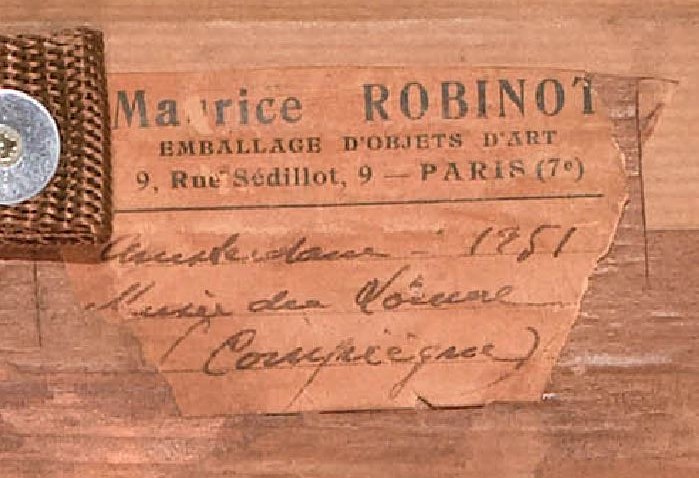 Maurice ROBINOT
EMBALLAGE D'OBJETS D'ART
9, Rue Sédillot, 9 — PARIS (7e)
Amsterdam - 1951
Musée du
(Compiègne)